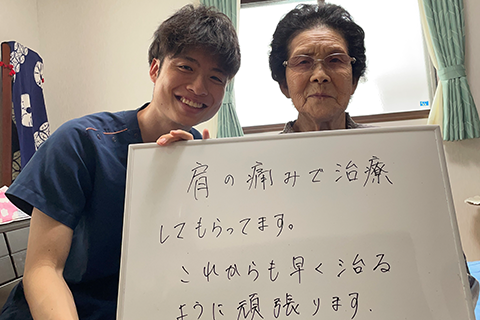 肩の痛みで治療
してもらってます。
これからも早く治る
ように頑張ります.